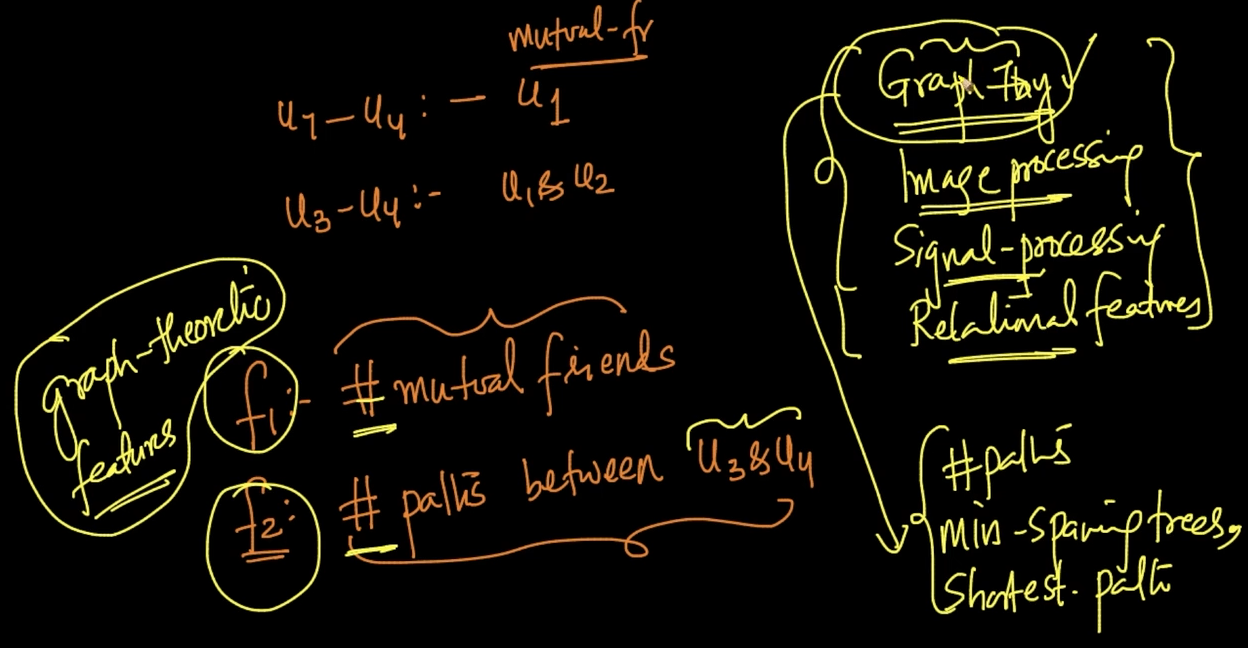 mutual-fr
u7-u4:- u1
u3-u4:- u1 & u2
graph-theoretic
features
f1:- # mutual friends
f2: # paths between u3 & u4
Graph-Thy
Image processing
Signal-processing
Relational features
#paths
min-spaning trees,
Shortest. path